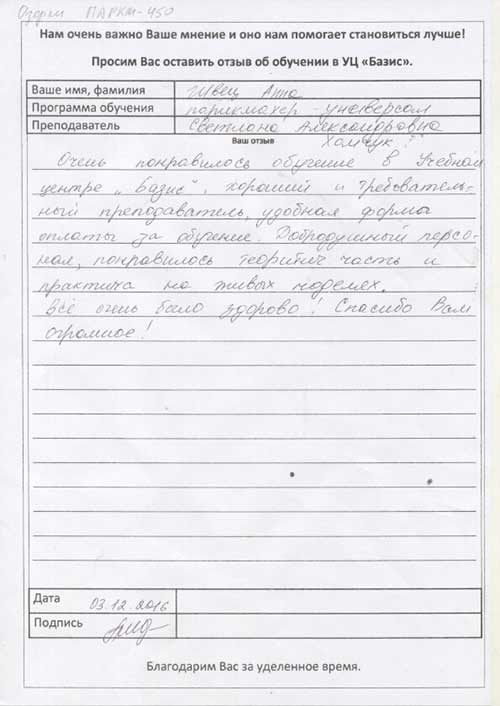 Озерки ПАРКМ-450
Нам очень важно Ваше мнение и оно нам помогает становиться лучше!
Просим Вас оставить отзыв об обучении в УЦ «Базис».
Ваше имя, фамилия Швец Анна
Программа обучения парикмахер-универсал
Преподаватель Светлана Александровна
Ваш отзыв Хомчук
Очень понравилось обучение в Учебном
центре „Базис", хороший и требователь-
ный преподаватель, удобная форма
оплаты за обучение. Добродушный персо-
нал, понравилось теоритич часть и
практика на живых моделях.
Всё очень было здорово! Спасибо Вам
огромное!
Дата 03.12.2016
Подпись
Благодарим Вас за уделенное время.